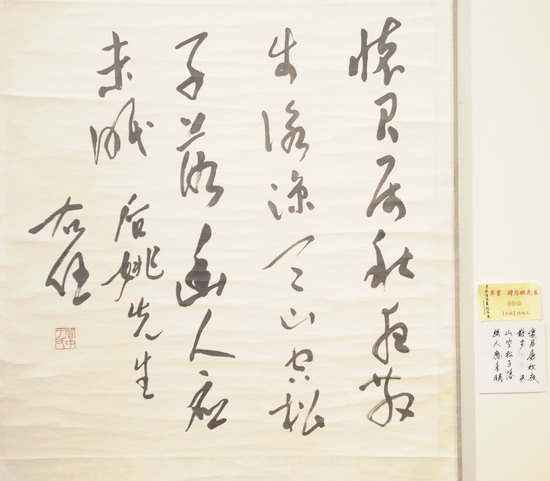 懷君屬秋夜散
步詠涼天山空松
子落幽人應
未眠
后姚先生
右任
關中于氏
草書 贈后姚先生
懷君屬秋夜
散步 天
山空松子落
幽人應未眠